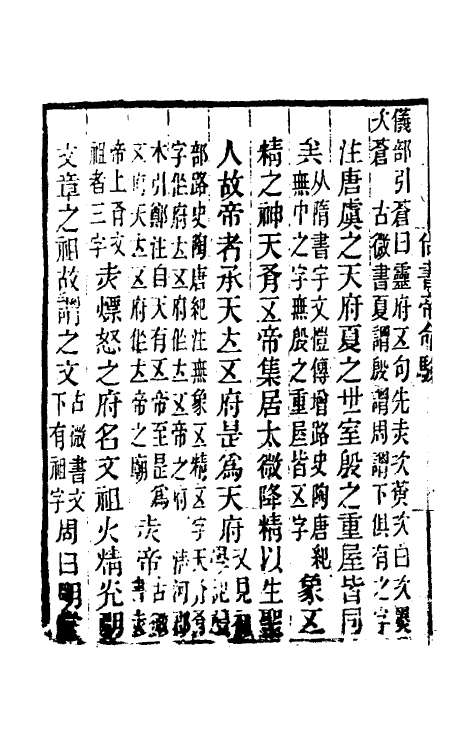 尚書帝命驗
儀部引蒼曰靈府五句先赤次黃次白次黑
次蒼　古微書夏謂殷謂周謂下俱有之字
注唐虞之天府夏之世室殷之重屋皆同
矣從隋書宇文愷傳增路史陶唐紀無巾之字無殷之重屋皆五字象五
精之神天有五帝集居太微降精以生聖
人故帝者承天立五府是為天府又見初學記禮
部路史陶唐紀注無象五精五字天有
字從府立五府作立五帝之府　清河郡
本引鄭注自天有五帝至是為五府天立五府作立帝之廟赤帝古微書赤
帝上有文祖者三字赤熛怒之府名文祖火精光明
文章之祖故謂之文古微書文下有祖字周曰明堂